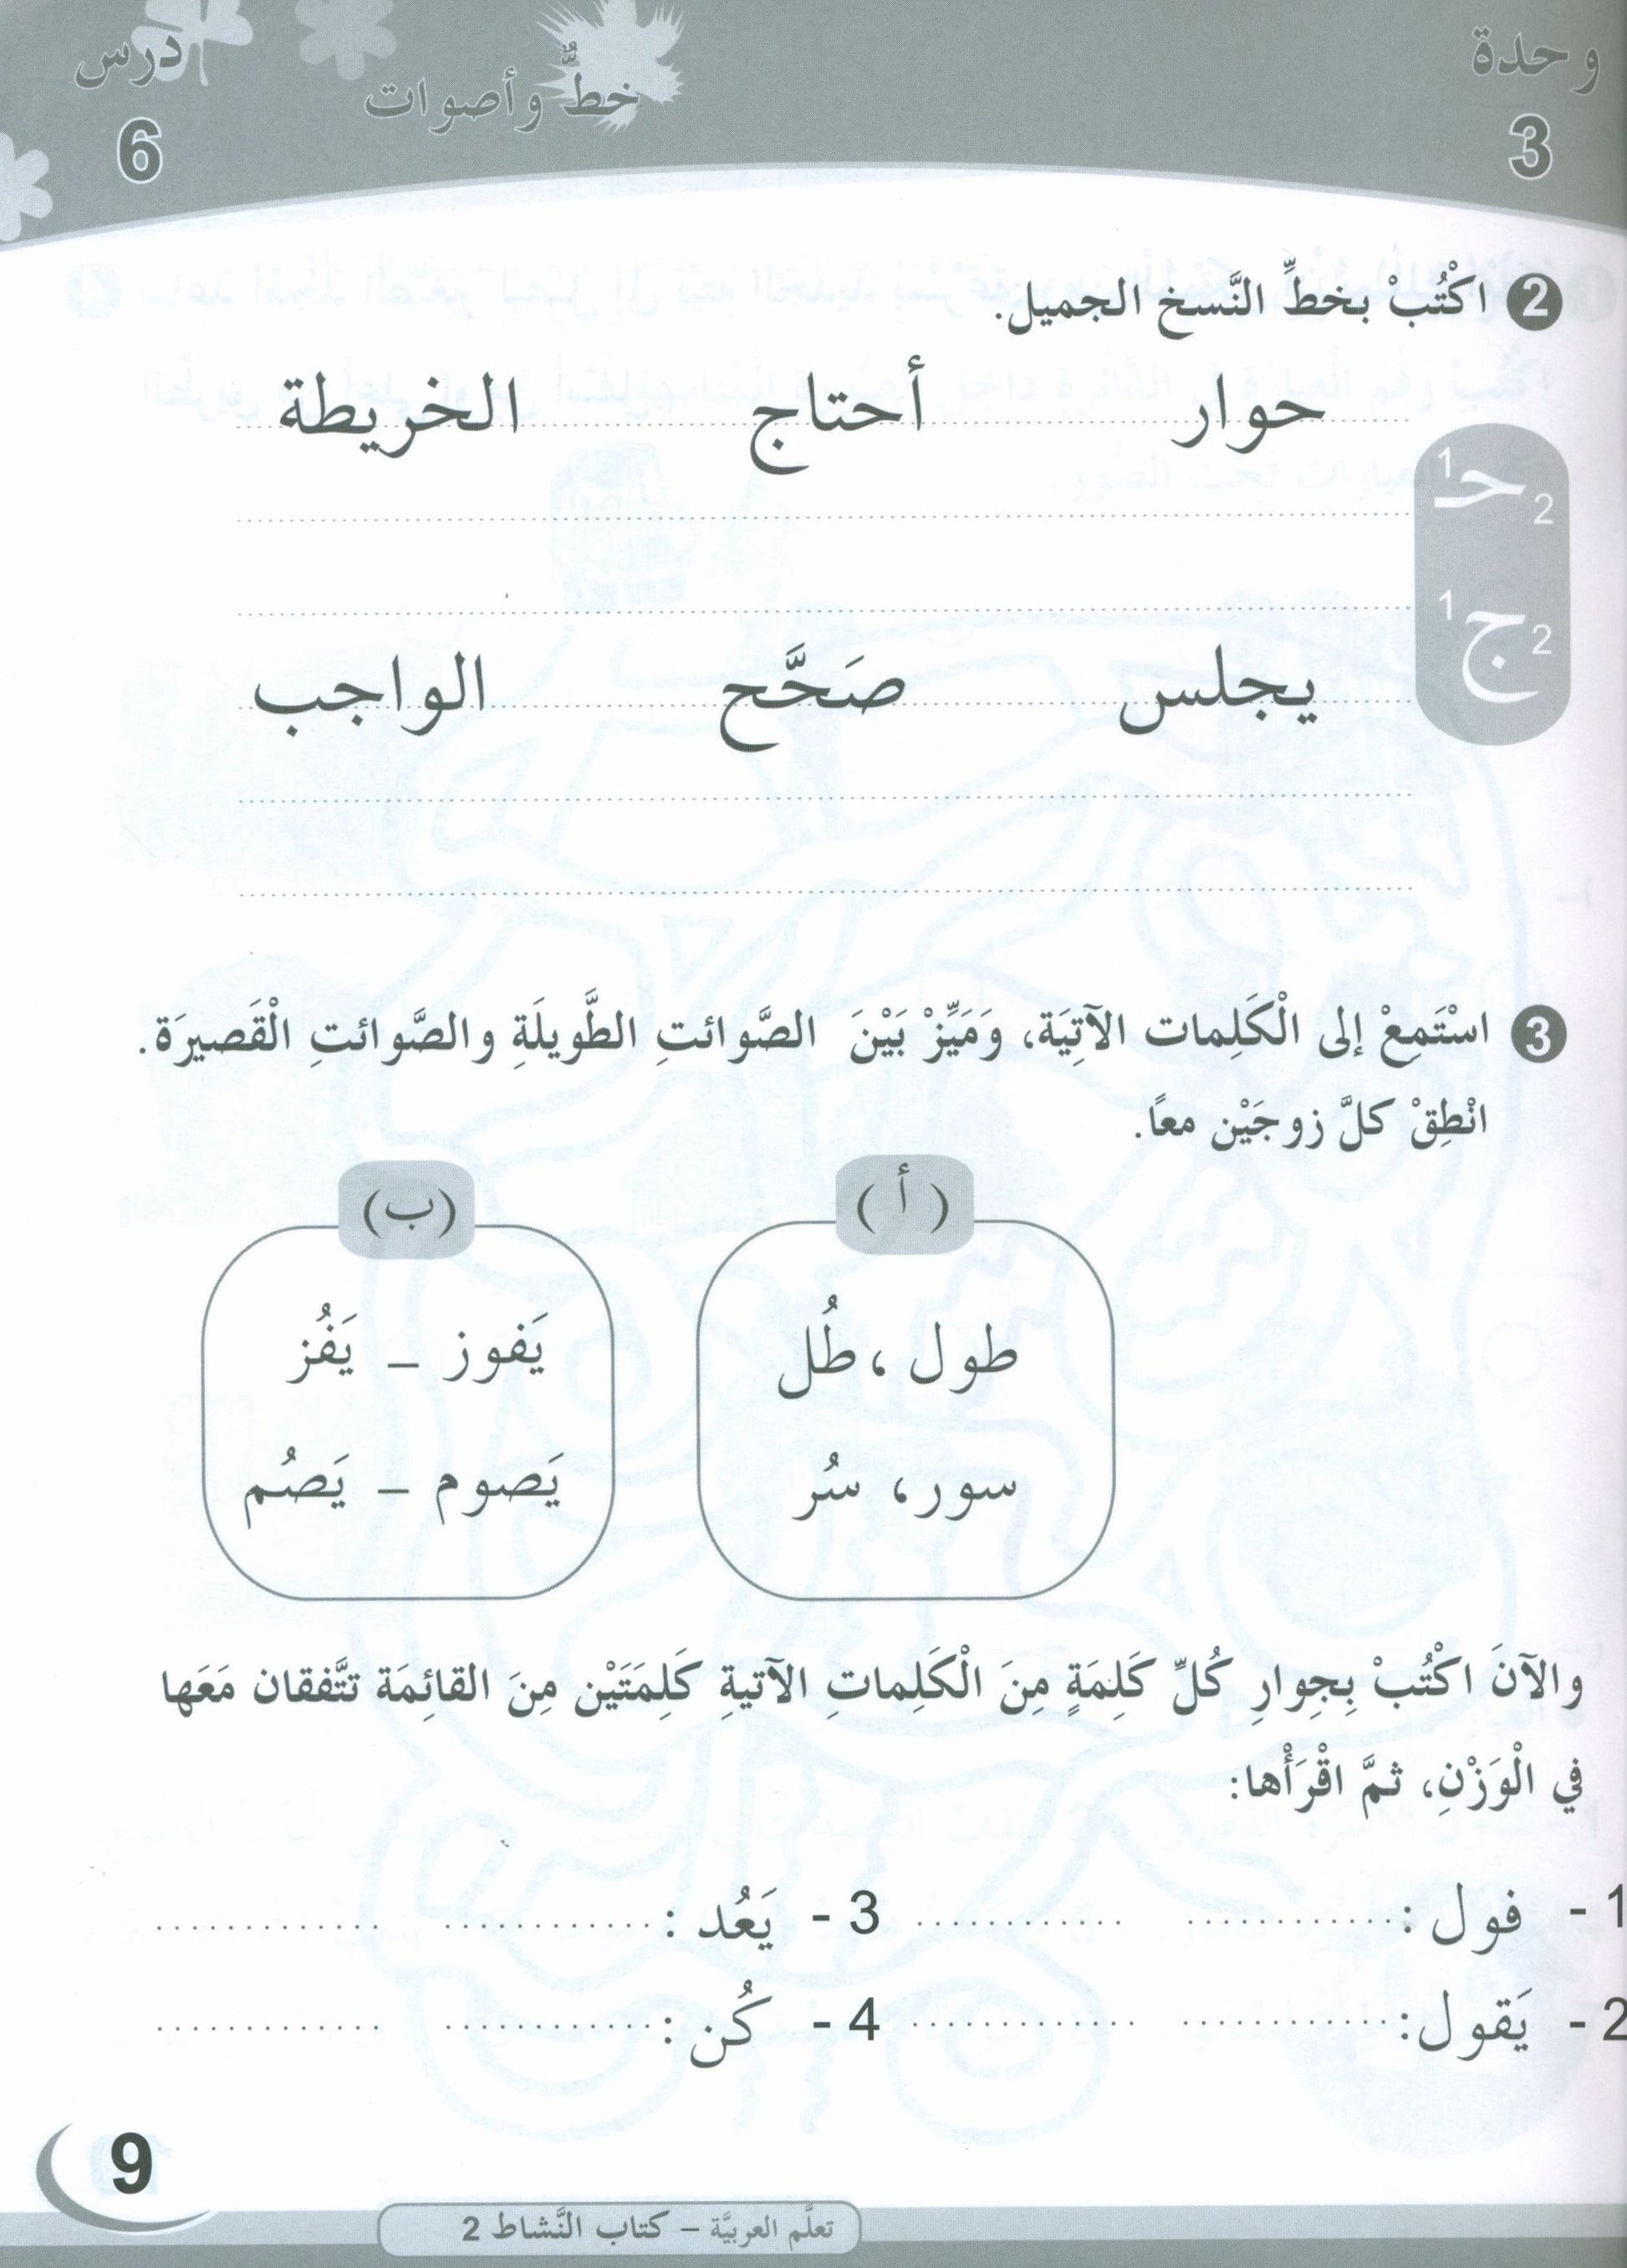 وحدة
3
خطٌّ وأصوات
درس
6
2 اكْتُبْ بخطِّ النَّسخ الجميل.
حوار أحتاج الخريطة
حـ 1 2
ج 1 2
يجلس صَحَّح الواجب
3 اسْتَمِعْ إلى الْكَلِمات الآتِيَة، وَمَيِّزْ بَيْنَ الصَّوائتِ الطَّويلَةِ والصَّوائتِ الْقَصيرَة.
انْطِقْ كلَّ زوجَيْن معًا.
(أ)
طول، طُل
سور، سُر
(ب)
يَفوز – يَفُز
يَصوم – يَصُم
والآنَ اكْتُبْ بِجِوارِ كُلِّ كَلِمَةٍ مِنَ الْكَلِماتِ الآتيةِ كَلِمَتَيْن مِنَ القائِمَة تتَّفقان مَعَها
في الْوَزْنِ، ثمَّ اقْرَأْها:
1- فول : ............ ............ 3- يَعُد : ............ ............
2- يَقول: ............ ............ 4- كُن : ............ ............
9
تعلَّم العربيَّة – كتاب النَّشاط 2